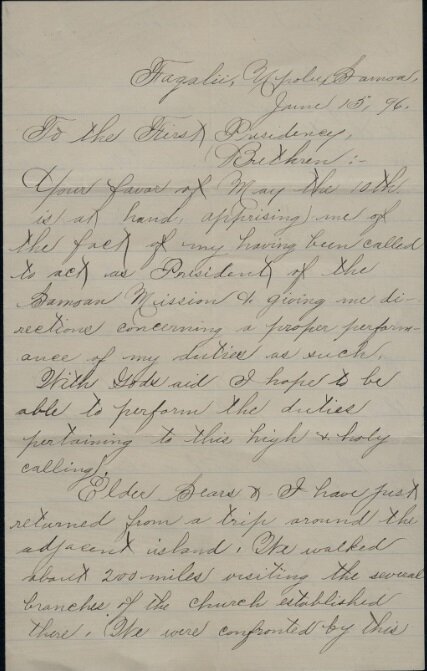 Fagalii, Upolu, Samoa,
June 15, 96.
To the First Presidency,
Brethren :-
Your favor of May the 10th
is at hand, apprising me of
the fact of my having been called
to act as President of the
Samoan Mission & giving me di-
rections concerning a proper perform-
ance of my duties as such.
With Gods aid I hope to be
able to perform the duties
pertaining to this high & holy
calling.
Elder Sears & I have just
returned from a trip around the
adjacent island. We walked
about 200 miles visiting the several
branches of the church established
there. We were confronted by this